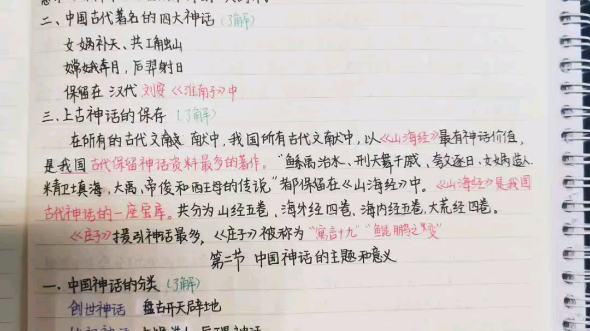 二、中国古代著名的四大神话（了解）
女娲补天、共工触山
嫦娥奔月，后羿射日
保留在 汉代 刘安《淮南子》中
三.上古神话的保存（了解）
在所有的古代文献中，我国所有古代文献中，以《山海经》最有神话价值，
是我国古代保留神话资料最多的著作。“鲧禹治水、刑天舞干戚、夸父逐日、女娲造人、
精卫填海，大禹、帝俊和西王母的传说”都保留在《山海经》中。《山海经》是我国
古代神话的一座宝库。共分为山经五卷、海外经四卷、海内经五卷、大荒经四卷。
《庄子》援引神话最多，《庄子》被称为“寓言十九”“鲲鹏之变”
第二节 中国神话的主题和意义
一.中国神话的分类（了解）
创世神话 盘古开天辟地